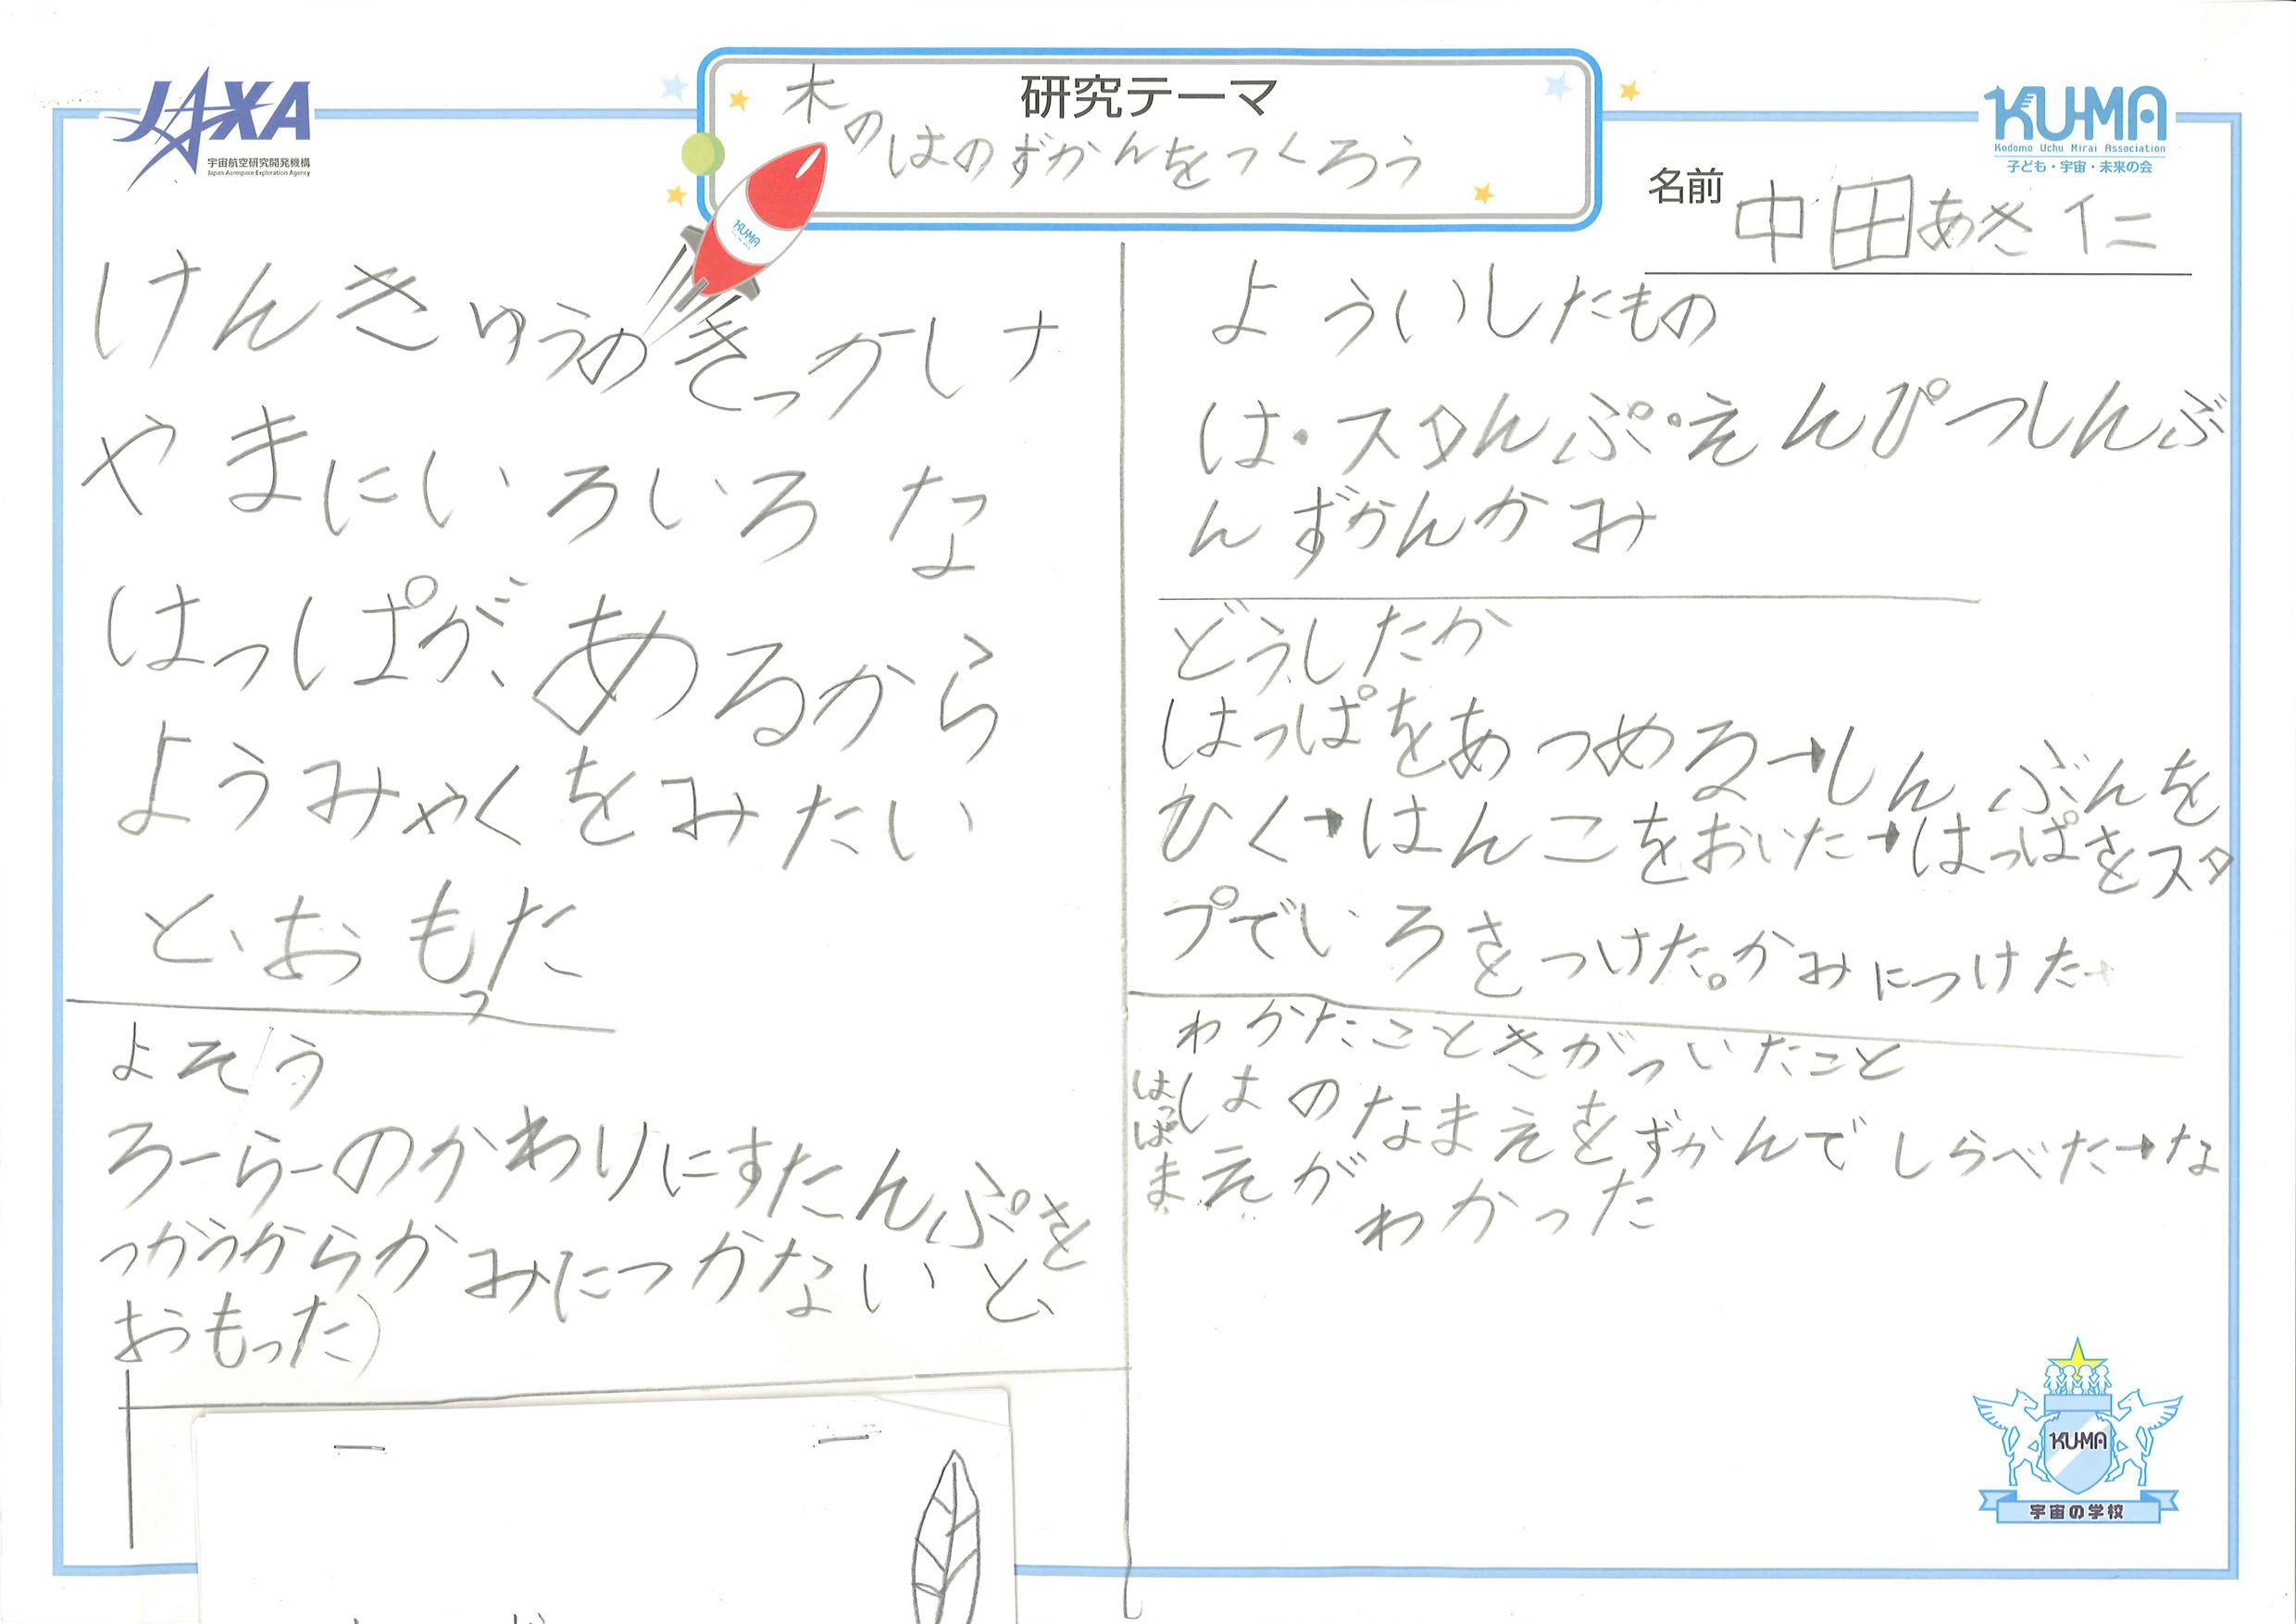 JAXA
宇宙航空研究開発機構
Japan Aerospace Exploration Agency
研究テーマ
木のはのずかんをつくろう
KUMA
KU-MA
Kodomo Uchu Mirai Association
子ども・宇宙・未来の会
名前 中田あき仁
けんきゅうのきっかけ
やまにいろいろな
はっぱが、あるから
ようみゃくをみたい
と、おもった
よそう
ろーらーのかわりにすたんぷを
つかうからかみにつかないと、
おもった)
よういしたもの
は・スタんぷ・えんぴつしんぶ
んずかんかみ
どうしたか
はっぱをあつめる→しんぶんを
ひく→はんこをおいた→はっぱをスタ
プでいろをつけた。かみにつけた
わかたこときがついたこと
はっぱ
はのなまえをずかんでしらべた→な
まえがわかった
KU-MA
宇宙の学校